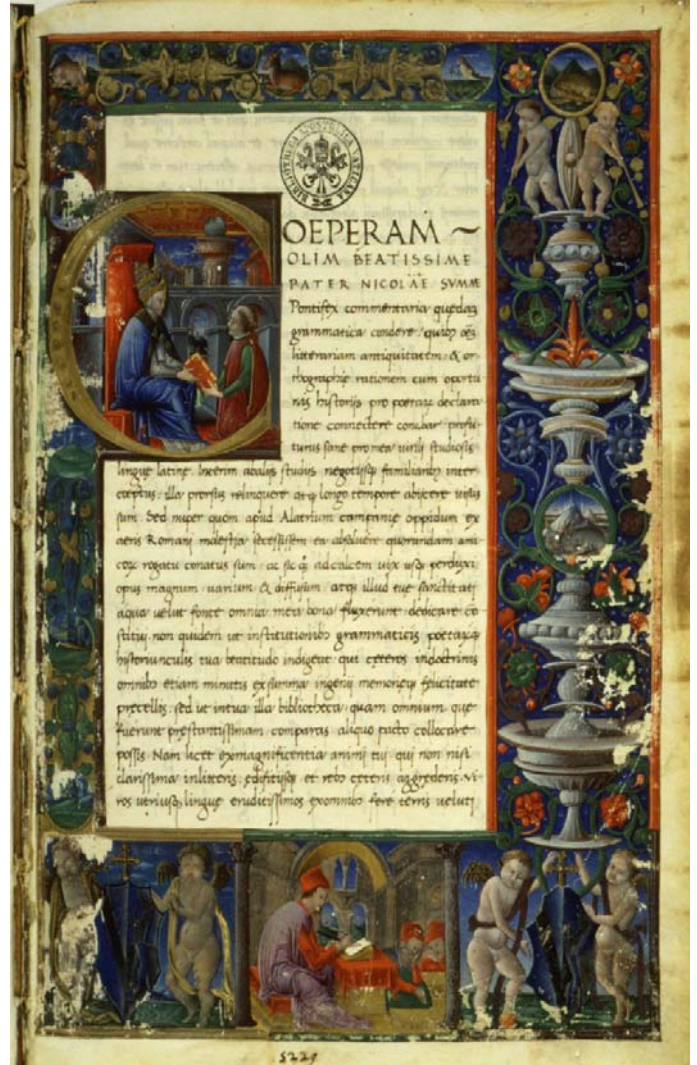 BIBLIOTHECA APOSTOLICA VATICANA
COEPERAM ~
OLIM BEATISSIME
PATER NICOLAE SVMME
Pontifex commentaria quedam
grammatica condere quibꝫ
litterariam antiquitatem & or
thographie rationem cum oportu
nis historijs pro poetaꝝ declara
tione connectere conabar profu
turus sane pro mea virili studiosis
lingue latine. Interim ab alijs studijs negotijsqꝫ familiaribꝫ inter
ceptus illa prorsus relinquere atqꝫ longo tempore abicere visus
sum. Sed nuper quom apud Alatrium campanie oppidum ex
aeris Romani molestia secessissem ea absolvere quorundam ami
coꝝ rogatu conatus sum ac sic ad calcem vix usqꝫ perduxi
opus magnum varium & diffusum atqꝫ illud tue sanctitati
a qua velut fonte omnia mea bona fluxerunt dedicare co
stitui non quidem ut institutionibꝫ grammaticis poetaꝝqꝫ
historiunculis tua beatitudo indigeat qui ceteros in doctrinis
omnibꝫ etiam minutis ex summa ingenij memorieqꝫ felicitate
precellis sed ut in tua illa bibliotheca quam omnium que
fuerunt prestantissimam comparas aliquo pacto collocare
possis. Nam licet ex magnificentia animi tui qui non nisi
clarissima in litteris edificijsqꝫ et rebꝫ ceteris aggrediens vi
ros utriusqꝫ lingue eruditissimos ex omnibꝫ fere terris veluti
5229